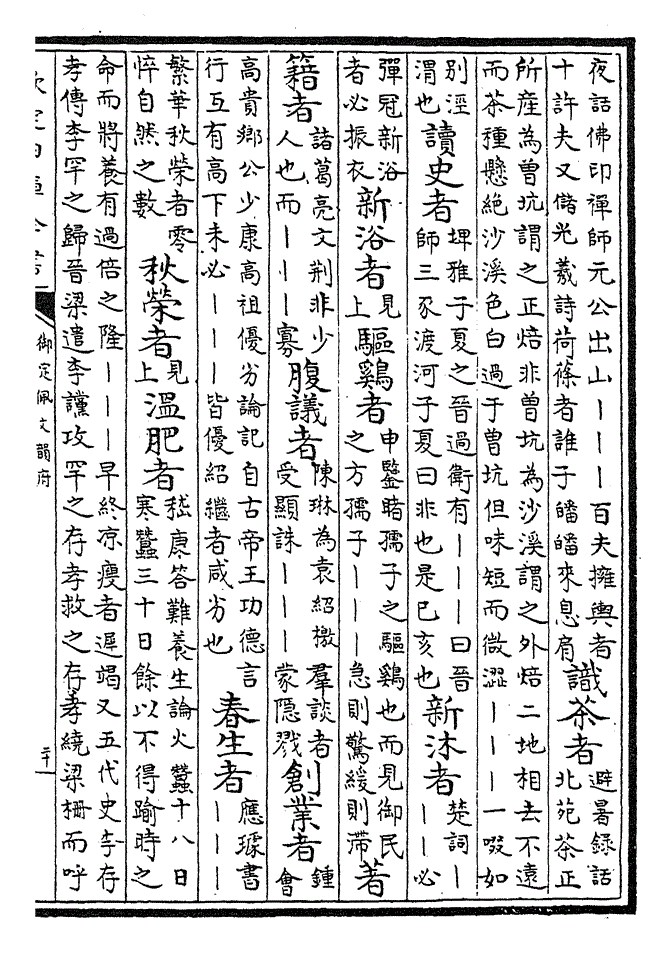 夜話佛印禪師元公出山丨丨丨百夫擁輿者
十許夫又儲光羲詩荷篠者誰子皤皤來息肩
識茶者
避暑録話
北苑茶正
所産為曽坑謂之正焙非曽坑為沙溪謂之外焙二地相去不遠
而茶種懸絶沙溪色白過于曽坑但味短而微澀丨丨丨一啜如
别涇
渭也
讀史者
埤雅子夏之晉過衛有丨丨丨曰晉
師三豕渡河子夏曰非也是已亥也
新沐者
楚詞丨
丨丨必
彈冠新浴
者必振衣
新浴者
見
上
驅鷄者
申鑒睹孺子之驅鷄也而見御民
之方孺子丨丨丨急則驚緩則滯
著
籍者
諸葛亮文荆非少
人也而丨丨丨寡
腹議者
陳琳為袁紹檄羣談者
受顯誅丨丨丨蒙隠戮
創業者
鍾
會
高貴鄉公少康高祖優劣論記自古帝王功德言
行互有高下未必丨丨丨皆優紹繼者咸劣也
春生者
應璩書
丨丨丨
繁華秋榮者零
悴自然之數
秋榮者
見
上
温肥者
嵇康答難養生論火蠶十八日
寒蠶三十日餘以不得踰時之
命而將養有過倍之隆丨丨丨早終凉瘦者遲竭又五代史李存
孝傳李罕之歸晉梁遣李讜攻罕之存孝救之存孝繞梁栅而呼
御定佩文韻府
二十